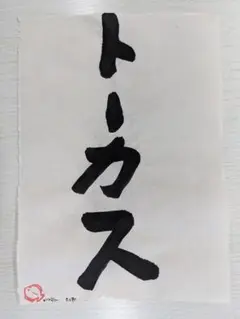 トーカス